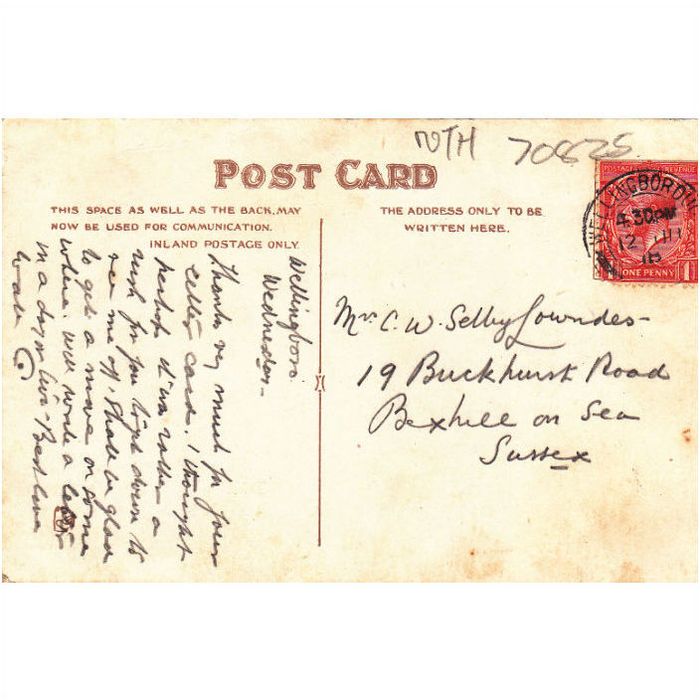 NTH 70825
POST CARD
THIS SPACE AS WELL AS THE BACK, MAY
NOW BE USED FOR COMMUNICATION.
INLAND POSTAGE ONLY.
THE ADDRESS ONLY TO BE
WRITTEN HERE.
POSTAGE REVENUE
ONE PENNY
WELLINGBOROUGH
4.30PM
12 JU
Wellingboro.
Wednesday.
Thanks very much for your
letter card. I thought
perhaps it was rather a
rush for you to get down to
see me off. Shall be glad
to get a move on some
where. Will write a letter
in a day or two. Best love
Mrs C. W. Selby Lowndes-
19 Buckhurst Road
Bexhill on Sea
Sussex